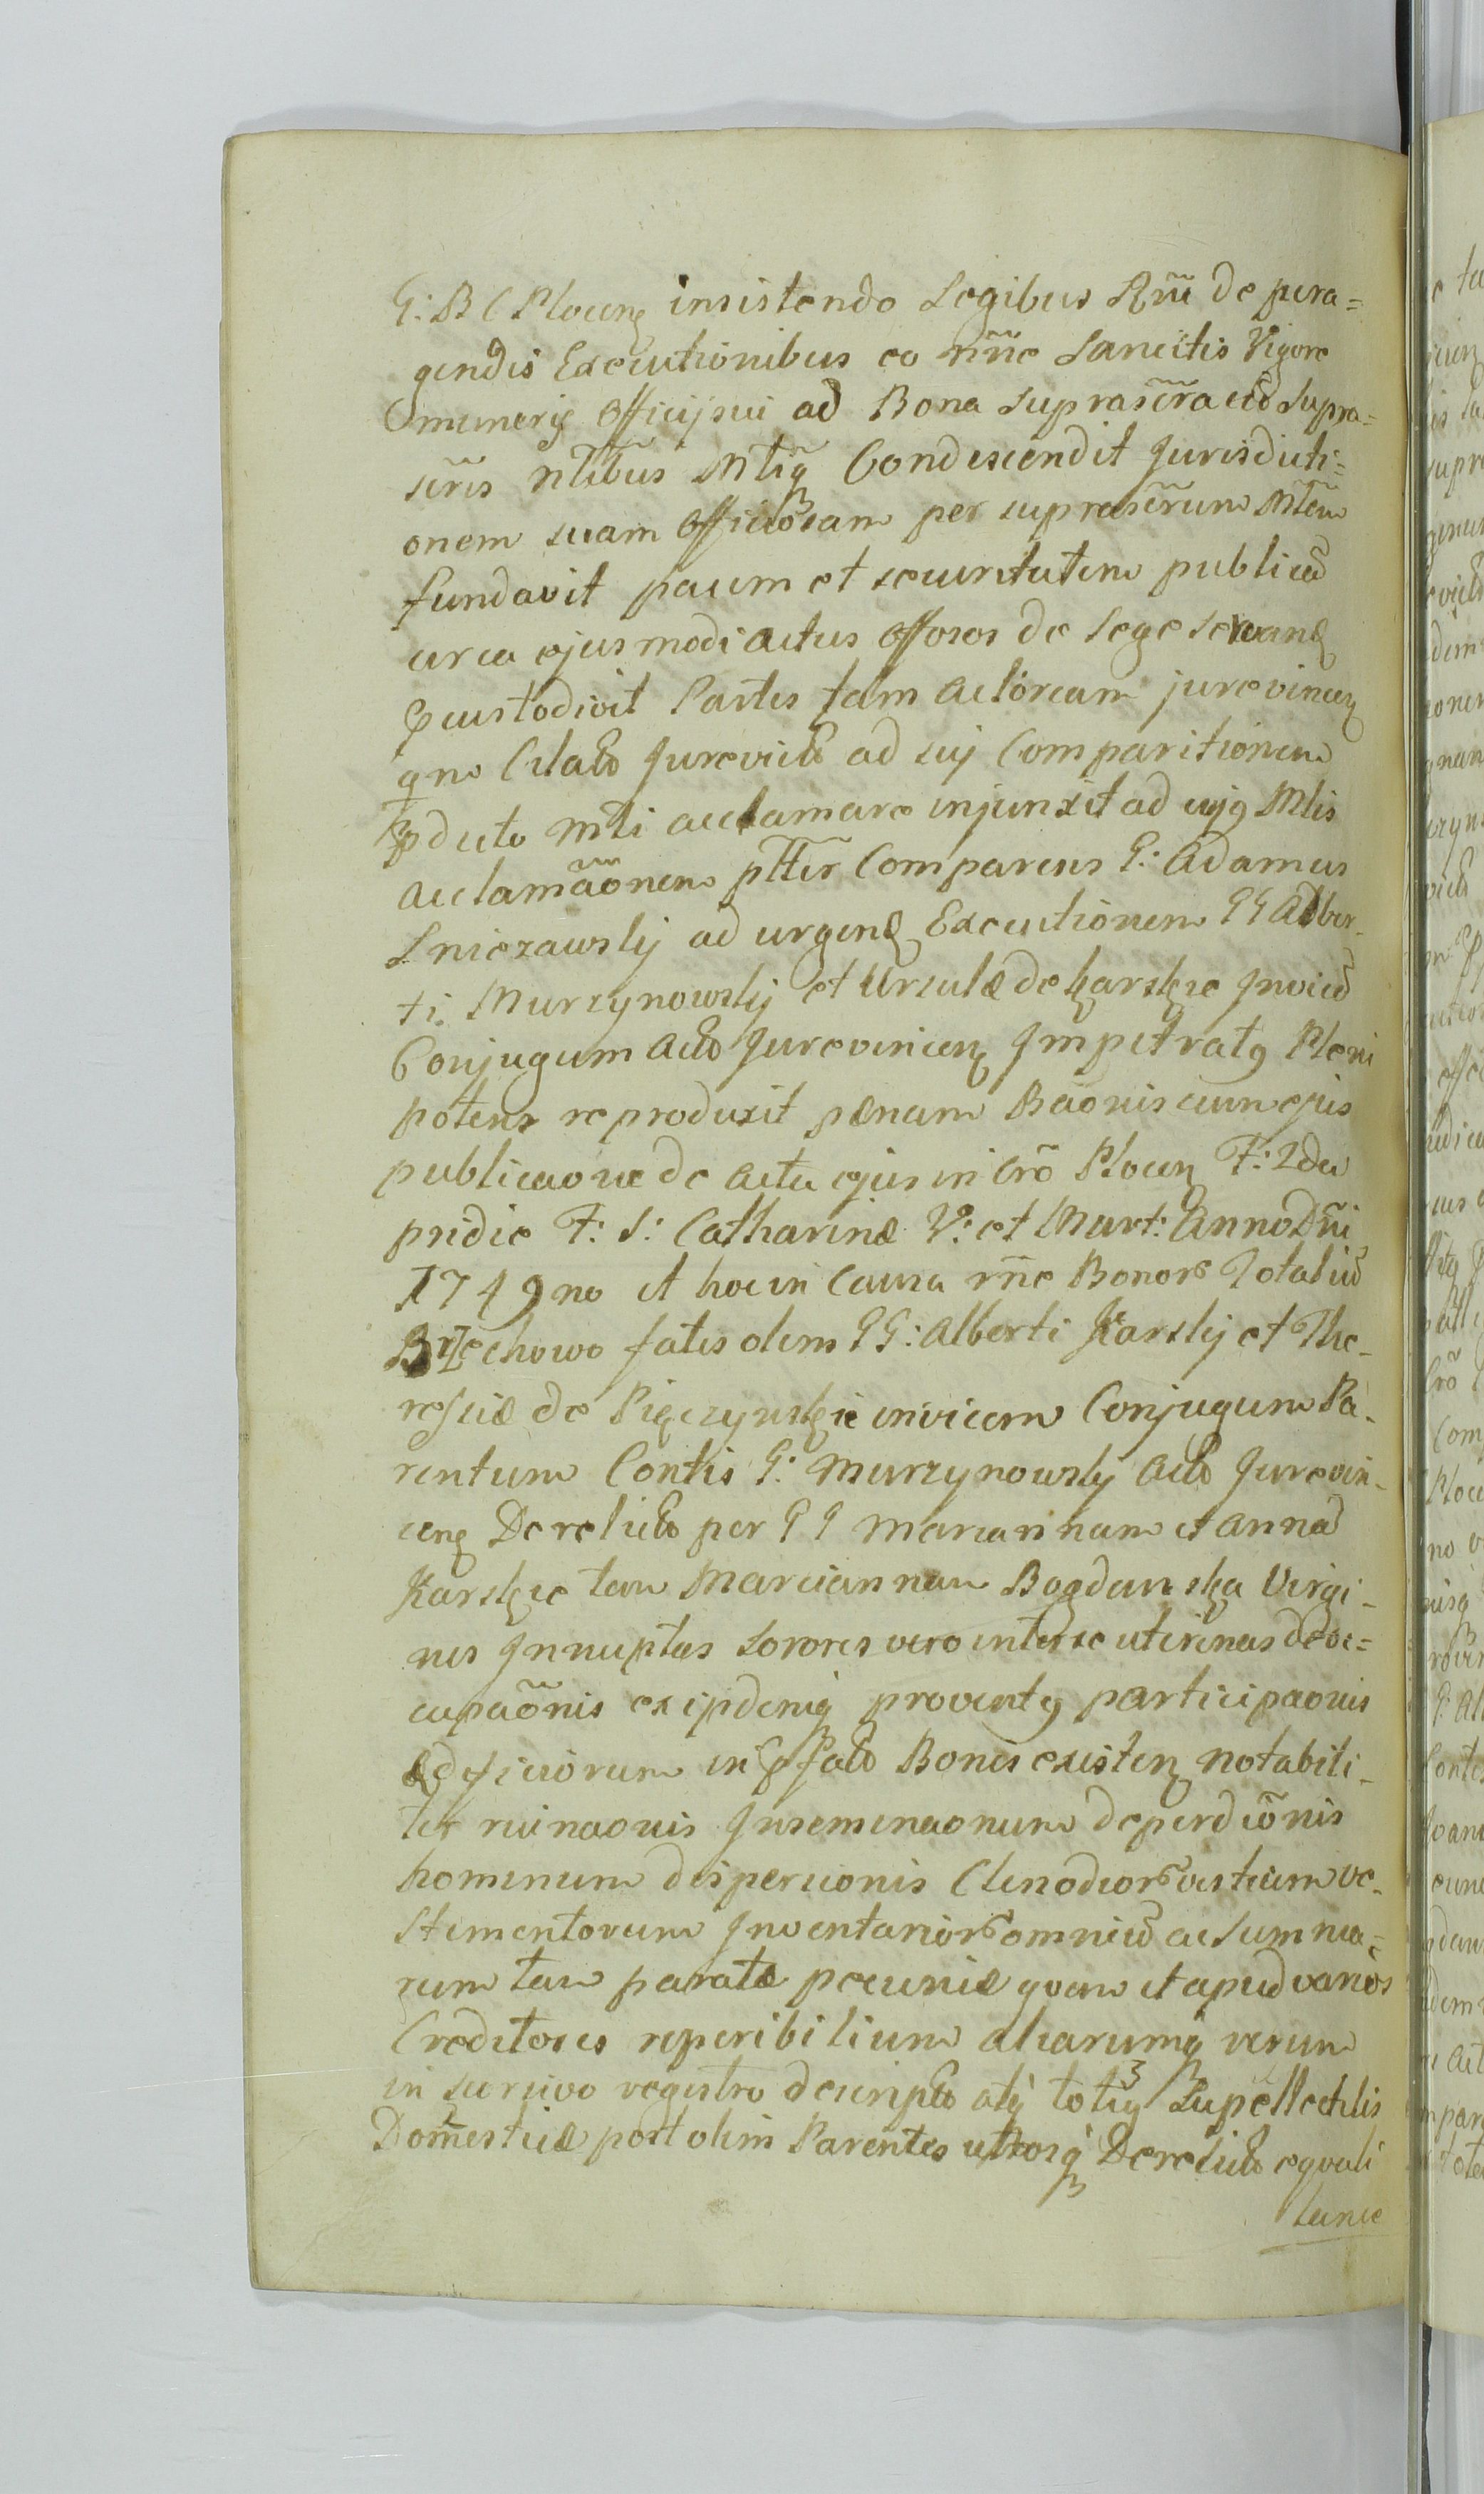 G: B C Plocen insistendo Legibus Rñi de pera=
gendis Executionibus eo nñe Sancitis Vigore
muneris Officij sui ad Bona suprascr̃a cũ supra=
scr̃is Nt̃ibus Mtĩq Condescendit Jurisdicti=
onem suam Officiosam per suprascr̃um Mt̃em
fundavit pacem et securitatem publicã
circa ejusmodi actus offosos de Lege servanđ
pcustodivit Partes tam actoream jurevincen
qm Citatã Jurevictã ad sui Comparitionem
pdicto Mt̃i acclamare injunxit ad cujq Mt̃is
acclamãonem pt̃ter Comparens G: Adamus
Sniezawskij ad urgenđ Executionem GG Alber-
ti Murzynowskij et Ursulæ de Karskie Invicẽ
Conjugum act Jurevincen Impetratq Pleni
potens reproduxit pænam Bãonis cum ejus
publicaone de actu ejus in Crõ Plocen F: 2da
pridie F: S: Catharinæ V: et Mart: Anno Dñi
1749no et hoc in Causa rñe Bonor Totaliũ
Brzechowo fatis olim GG: Alberti Karskij et The-
resiæ de Pięczynskie invicem Conjugum Pa-
rentum Contis G: Murzynowskij act Jurevin-
cen Derelict per GG Mariannam et Annã
Karskie tam Mariannam Bogdanska Virgi-
nes Innuptas Sorores vero inter se uterinas deoc=
cupaõnis exipdemq proventq participaonis
ædificiorum in pfat Bonis existen notabili-
ter ruinaonis Inseminaonum deperdiõnis
hominum dispersionis Clenodior vestium ve-
stimentorum Inventarior omniũ ac summa=
rum tam paratæ pecuniæ qvam et apud varios
Creditores reperibilium aliarumq rerum
in seorsivo regestro descript atq totiq Supellectilis
Domesticæ post olim Parentes utrosq Derelict eqvali
lance